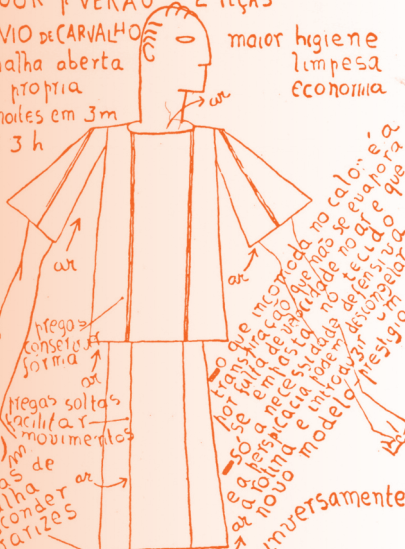 VERÃO
VIO DE CARVALHO
alha aberta
propria
noites em 3m
3 h
maior higiene
limpesa
ECONOMIA
ar
ar
ar
pregas
conservar
forma
ar
pregas soltas
facilitar
movimentos
ar
as de
lha
conder
arizes
—o que incomoda no calor é a
transpiração que não se evapora
por falta de velocidade no ar e que
se empasta no tecido
—só a necessidade defensiva
e a perspicacia podem descongelar
a rotina e introduzir um
novo modelo prestigio
ar
inversamente